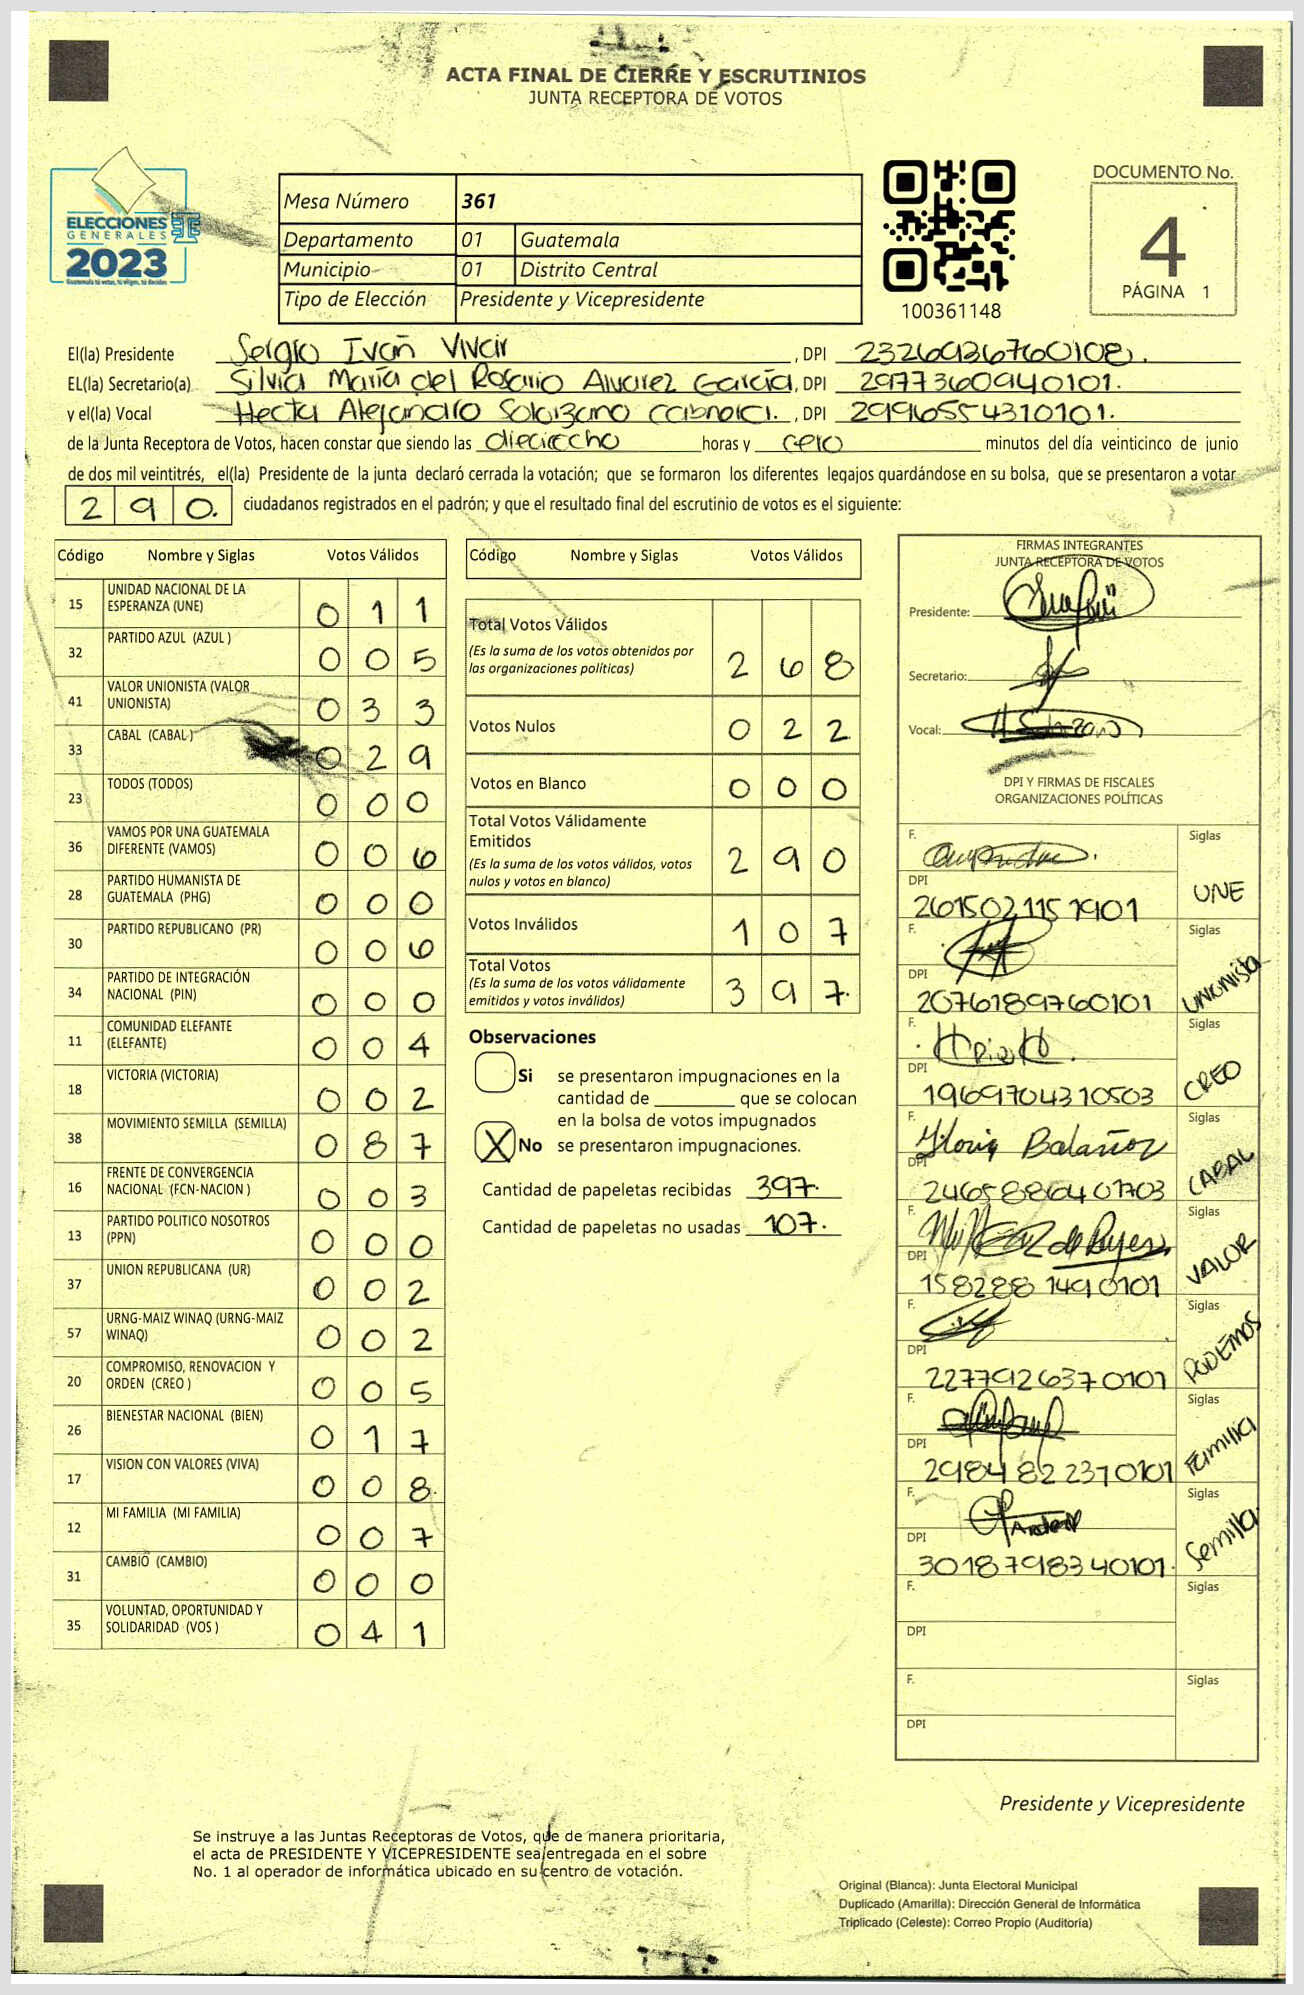 ACTA FINAL DE CIERRE Y ESCRUTINIOS
JUNTA RECEPTORA DE VOTOS
ELECCIONES
GENERALES
2023
Guatemala tú votas, tú eliges, tú decides
Mesa Número 361
Departamento 01 Guatemala
Municipio 01 Distrito Central
Tipo de Elección Presidente y Vicepresidente
100361148
DOCUMENTO No.
4
PÁGINA 1
El(la) Presidente Sergio Iván Vivar, DPI 2326936760108.
EL(la) Secretario(a) Silvia María del Rosario Alvarez García, DPI 2977360940101.
y el(la) Vocal Alejandro, DPI 2996554310101.
de la Junta Receptora de Votos, hacen constar que siendo las dieciocho horas y cero minutos del día veinticinco de junio
de dos mil veintitrés, el(la) Presidente de la junta declaró cerrada la votación; que se formaron los diferentes legajos guardándose en su bolsa, que se presentaron a votar
290. ciudadanos registrados en el padrón; y que el resultado final del escrutinio de votos es el siguiente:
Código Nombre y Siglas Votos Válidos
15 UNIDAD NACIONAL DE LA ESPERANZA (UNE) 0 1 1
32 PARTIDO AZUL (AZUL ) 0 0 5
41 VALOR UNIONISTA (VALOR UNIONISTA) 0 3 3
33 CABAL (CABAL ) 0 2 9
23 TODOS (TODOS) 0 0 0
36 VAMOS POR UNA GUATEMALA DIFERENTE (VAMOS) 0 0 6
28 PARTIDO HUMANISTA DE GUATEMALA (PHG) 0 0 0
30 PARTIDO REPUBLICANO (PR) 0 0 6
34 PARTIDO DE INTEGRACIÓN NACIONAL (PIN) 0 0 0
11 COMUNIDAD ELEFANTE (ELEFANTE) 0 0 4
18 VICTORIA (VICTORIA) 0 0 2
38 MOVIMIENTO SEMILLA (SEMILLA) 0 8 7
16 FRENTE DE CONVERGENCIA NACIONAL (FCN-NACION ) 0 0 3
13 PARTIDO POLITICO NOSOTROS (PPN) 0 0 0
37 UNION REPUBLICANA (UR) 0 0 2
57 URNG-MAIZ WINAQ (URNG-MAIZ WINAQ) 0 0 2
20 COMPROMISO, RENOVACION Y ORDEN (CREO ) 0 0 5
26 BIENESTAR NACIONAL (BIEN) 0 1 7
17 VISION CON VALORES (VIVA) 0 0 8.
12 MI FAMILIA (MI FAMILIA) 0 0 7
31 CAMBIO (CAMBIO) 0 0 0
35 VOLUNTAD, OPORTUNIDAD Y SOLIDARIDAD (VOS ) 0 4 1
Código Nombre y Siglas Votos Válidos
Total Votos Válidos
(Es la suma de los votos obtenidos por
las organizaciones políticas) 2 6 8
Votos Nulos 0 2 2
Votos en Blanco 0 0 0
Total Votos Válidamente
Emitidos
(Es la suma de los votos válidos, votos
nulos y votos en blanco) 2 9 0
Votos Inválidos 1 0 7
Total Votos
(Es la suma de los votos válidamente
emitidos y votos inválidos) 3 9 7.
Observaciones
Si se presentaron impugnaciones en la
cantidad de ________ que se colocan
en la bolsa de votos impugnados
X No se presentaron impugnaciones.
Cantidad de papeletas recibidas 397.
Cantidad de papeletas no usadas 107.
FIRMAS INTEGRANTES
JUNTA RECEPTORA DE VOTOS
Presidente:
Secretario:
Vocal:
DPI Y FIRMAS DE FISCALES
ORGANIZACIONES POLÍTICAS
F. Siglas
DPI UNE
2615021151901
F. Siglas
DPI Unionista
2076189760101
F. Siglas
DPI CREO
1969704310503
F. Siglas
DPI CABAL
2465886401703
F. Siglas
DPI VALOR
1582881490101
F. Siglas
DPI PODEMOS
2277926370101
F. Siglas
DPI Familia
2984822370101
F. Siglas
DPI Semilla
3018798340101.
F. Siglas
DPI
F. Siglas
DPI
Presidente y Vicepresidente
Se instruye a las Juntas Receptoras de Votos, que de manera prioritaria,
el acta de PRESIDENTE Y VICEPRESIDENTE sea entregada en el sobre
No. 1 al operador de informática ubicado en su centro de votación.
Original (Blanca): Junta Electoral Municipal
Duplicado (Amarilla): Dirección General de Informática
Triplicado (Celeste): Correo Propio (Auditoría)